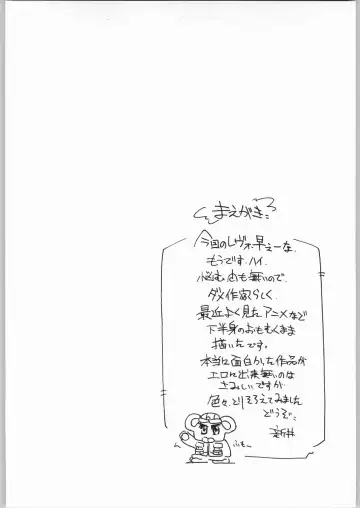 まえがき
今回のレヴォ早ぇーな、
もうです、ハイ、
悩む由も無いので、
ダメ作家らしく、
最近よく見たアニメなど
下半身のおもむくまま
描いたです。
本当に面白かった作品が
エロに出来無いのは
さみしいですが
色々、とりそろえてみました
どうぞ、
新井
ふもー